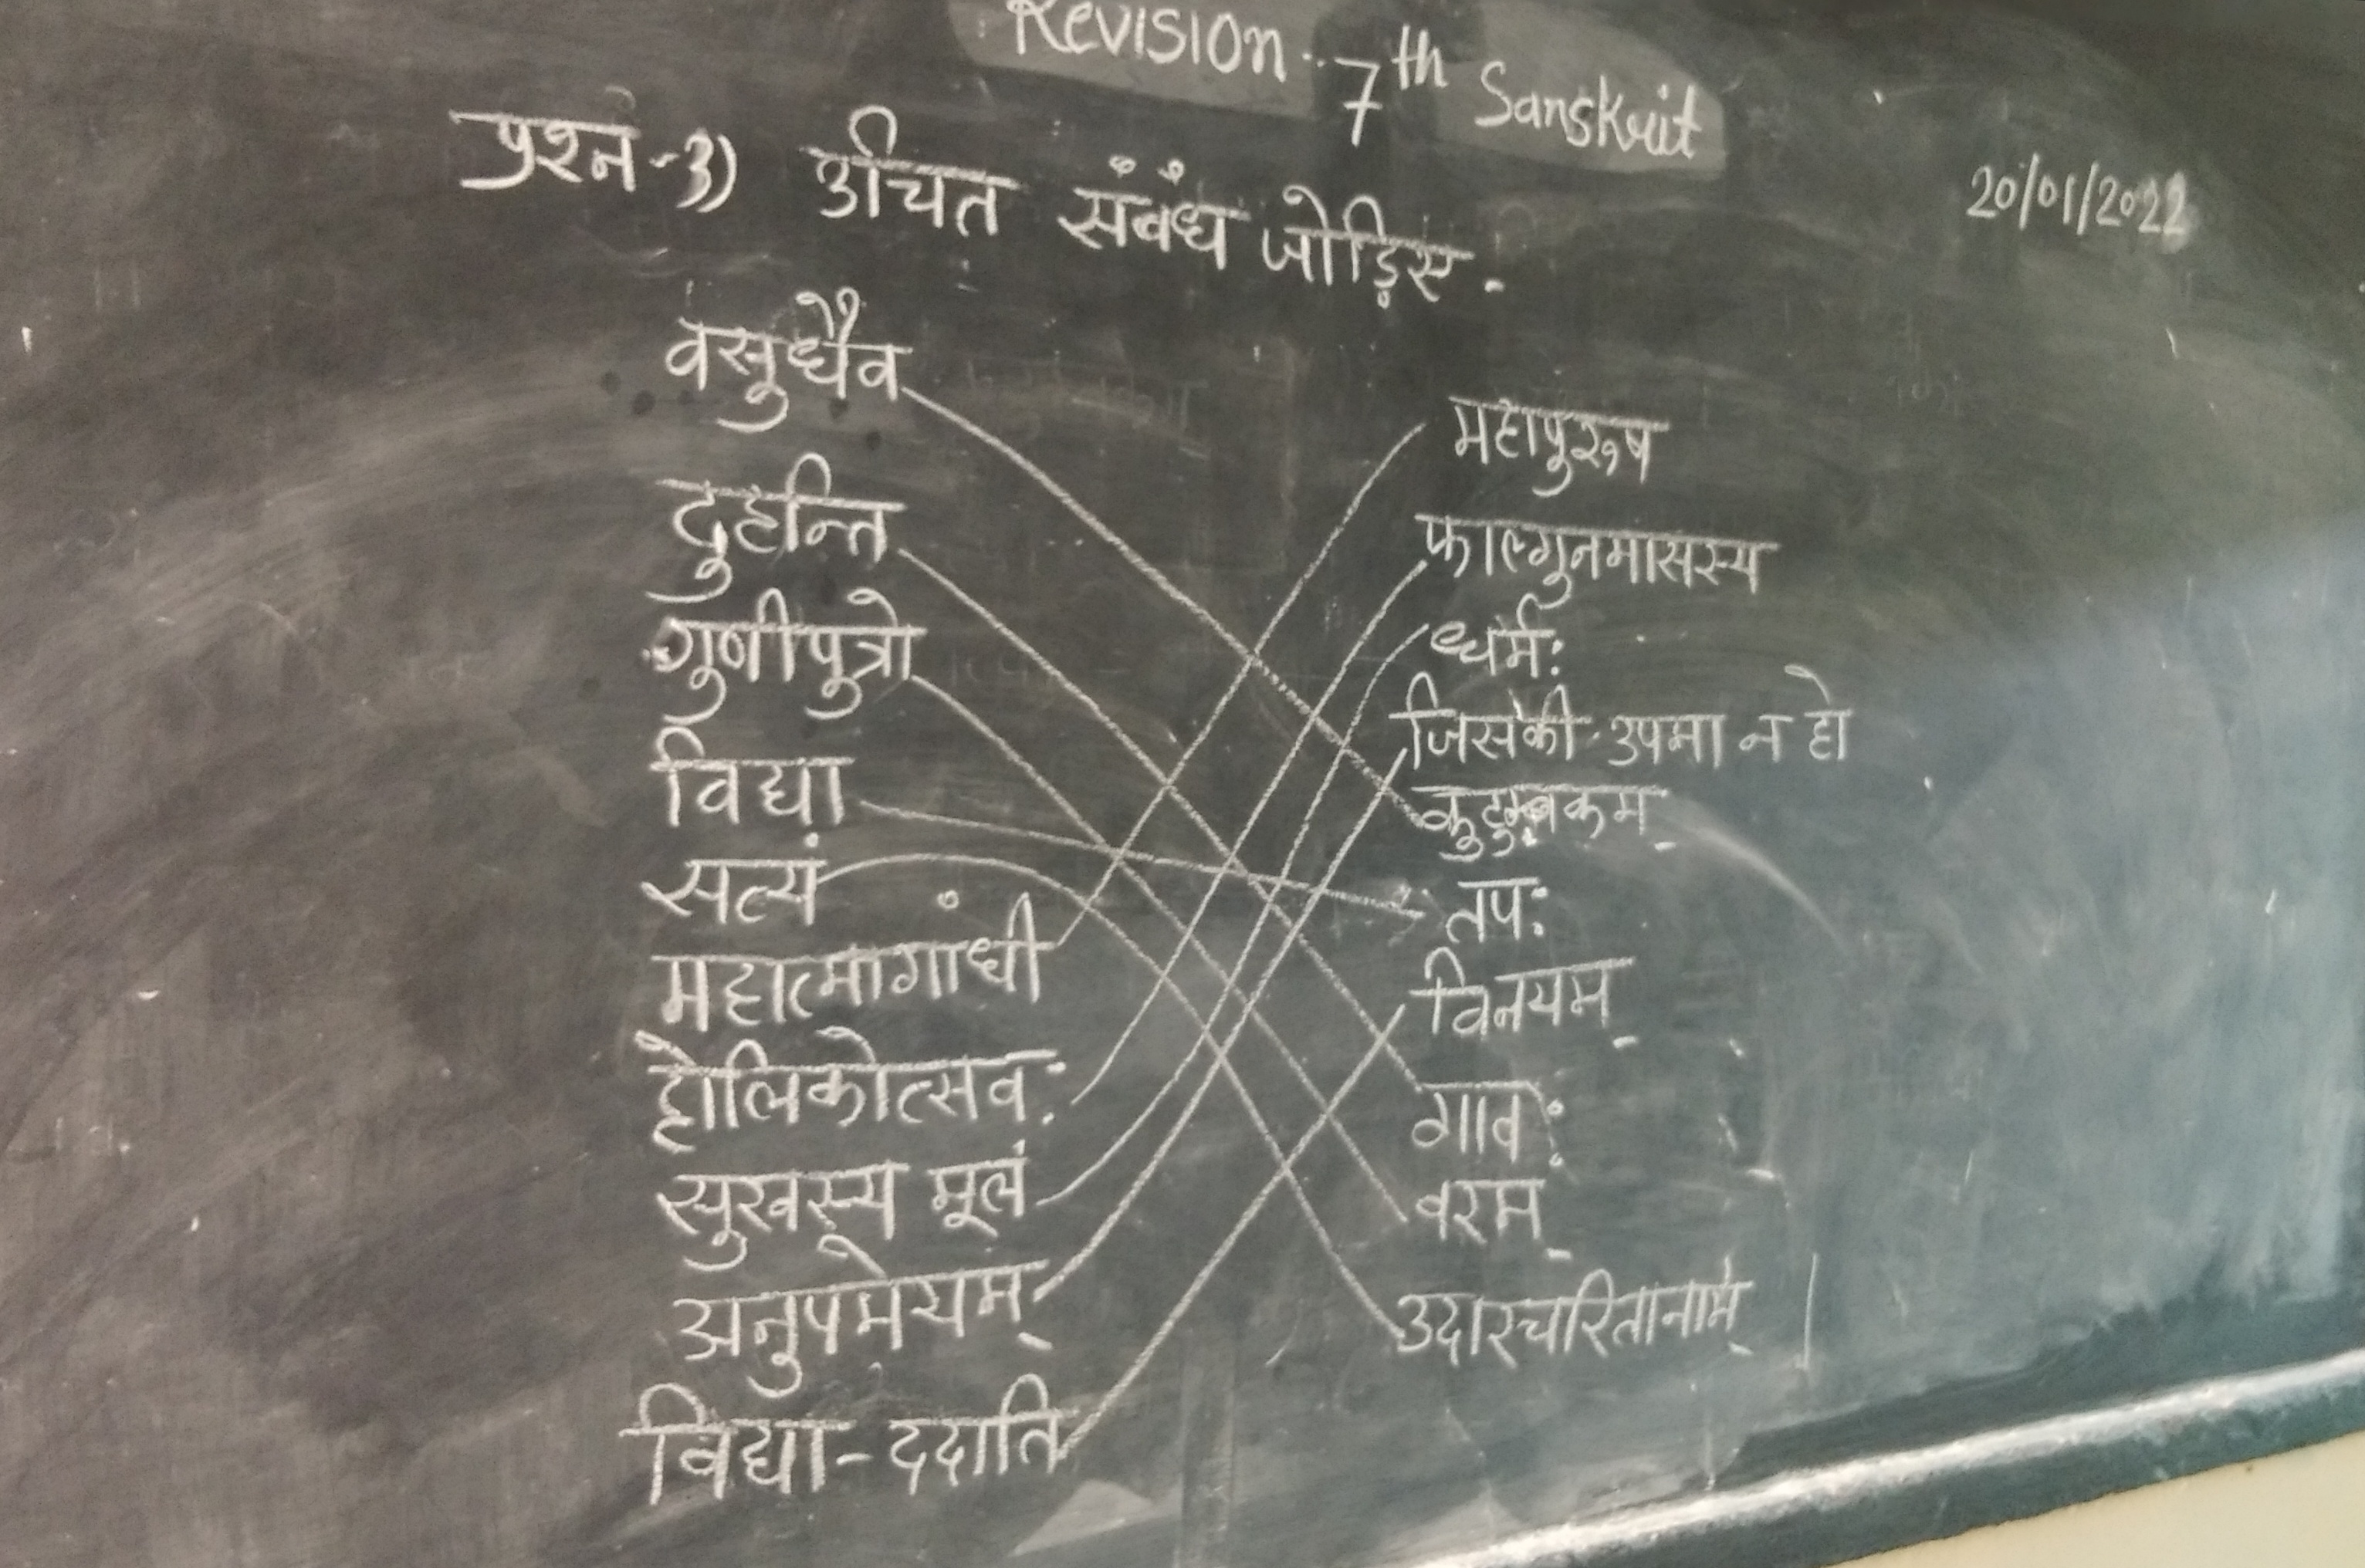 Revision 7th Sanskrit
20/01/2022
प्रश्न-3) उचित संबंध जोड़िए.
वसुधैव
दुहन्ति
गुणीपुत्रो
विद्या
सत्यं
महात्मागांधी
होलिकोत्सव:
सुखस्य मूलं
अनुपमेयम्
विद्या-ददाति
महापुरूष
फाल्गुनमासस्य
धर्म:
जिसकी उपमा न हो
कुटुम्बकम्
तप:
विनयम्
गाव:
वरम्
उदारचरितानाम् |